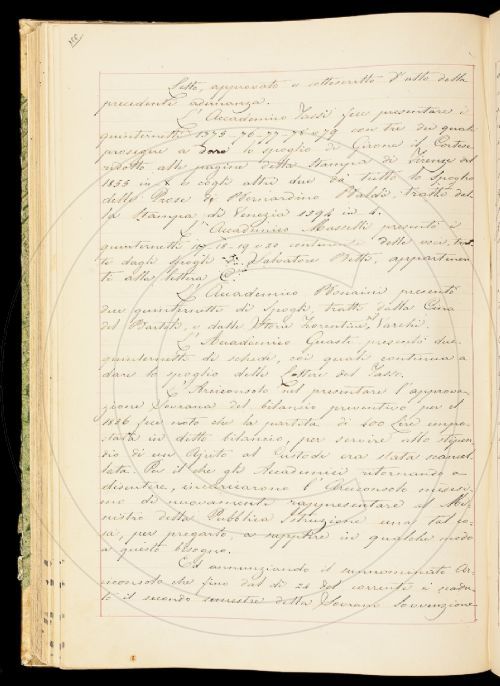 Letto, approvato e sottoscritto l'atto della
precedente adunanza.
L'Accademico Tassi fece presentare i
quinternetti 1375-76-77-78 e 79 con tre dei quali
prosegue a dare lo spoglio di Girone il Cortese
ridotto alle pagine della Stampa di Firenze del
1855 in 8. e cogli altri due dà tutto lo Spoglio
delle Prose di Bernardino Baldi, tratto dal
la Stampa di Venezia 1594 in 4.
L'Accademico Masselli presentò i
quinternetti 18-19 e 20 contenenti delle voci, trat
te dagli spogli di Salvatore Betti, appartenen
ti alla lettera C.
L'Accademico Bonaini presentò
due quinternetti di spogli, tratti dalla Cina
del Bartoli, e dalle Storie Fiorentine del Varchi.
L'Accademico Guasti presentò due
quinternetti di schede, coi quali continua a
dare lo spoglio delle Lettere del Tasso.
L'Arciconsolo nel presentare l'approva-
zione Sovrana del bilancio preventivo per il
1856 fece noto che la partita di 400 Lire impo-
stata in detto bilancio, per servire allo stipen
dio di un Ajuto al Custode era stata scancel
lata. Per il che gli Accademici ritornando a
discutere, incaricarono l'Arciconsolo medesi-
mo di nuovamente rappresentare al Mi-
nistro della Pubblica Istruzione una tal co-
sa, per pregarlo, a supplire in qualche modo
a questo bisogno.
Ed annunziando il summominato Ar-
ciconsolo che fino dal dì 24 del corrente è scadu-
to il secondo semestre della Sovrana Sovvenzione